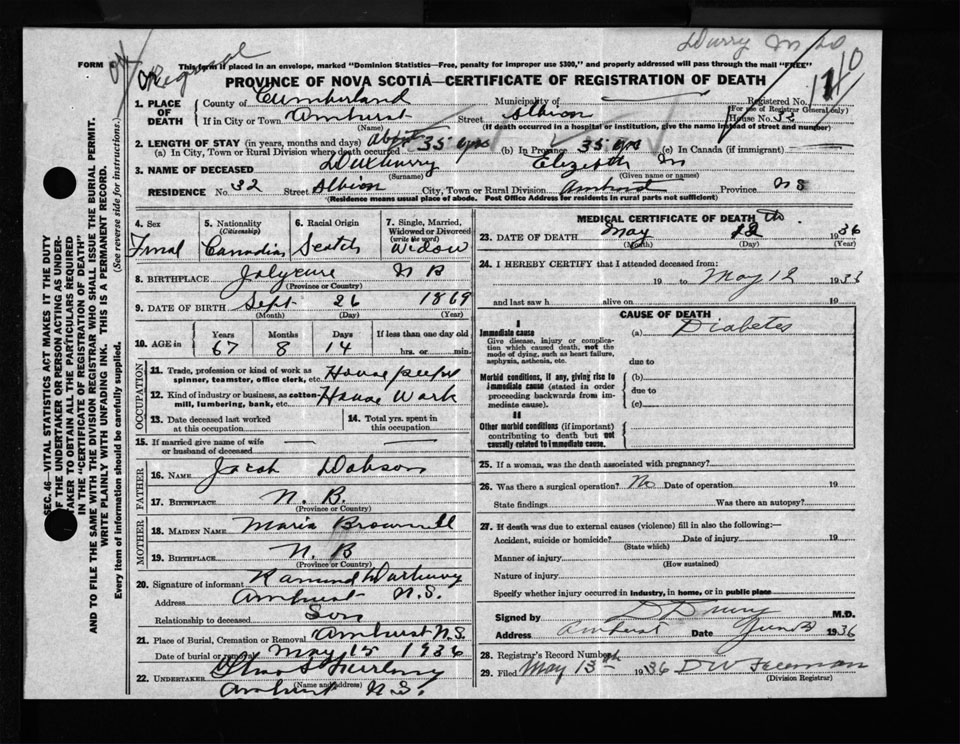 Durry M D
FORM
This form if placed in an envelope, marked "Dominion Statistics—Free, penalty for improper use $300," and properly addressed will pass through the mail "FREE"
PROVINCE OF NOVA SCOTIA—CERTIFICATE OF REGISTRATION OF DEATH
1. PLACE OF DEATH
County of Cumberland Municipality of Registered No.
(For use of Registrar General only)
If in City or Town Amherst Street Albion House No. 32
(Name) (If death occurred in a hospital or institution, give the name instead of street and number)
2. LENGTH OF STAY (in years, months and days)
(a) In City, Town or Rural Division where death occurred 35 yrs (b) In Province 35 yrs (c) In Canada (if immigrant)
3. NAME OF DECEASED Duxburry Elizebth M
(Surname) (Given name or names)
RESIDENCE No. 32 Street Albion City, Town or Rural Division Amherst Province N S
(Residence means usual place of abode. Post Office Address for residents in rural parts not sufficient)
SEC. 46—VITAL STATISTICS ACT MAKES IT THE DUTY
OF THE UNDERTAKER OR PERSON ACTING AS UNDERTAKER TO OBTAIN ALL THE PARTICULARS REQUIRED
IN THE "CERTIFICATE OF REGISTRATION OF DEATH"
AND TO FILE THE SAME WITH THE DIVISION REGISTRAR WHO SHALL ISSUE THE BURIAL PERMIT.
WRITE PLAINLY WITH UNFADING INK. THIS IS A PERMANENT RECORD.
Every item of information should be carefully supplied. (See reverse side for instructions.)
4. Sex
5. Nationality
(Citizenship)
Canadian
6. Racial Origin
Scotch
7. Single, Married, Widowed or Divorced
(write the word)
Widow
8. BIRTHPLACE Jolycure N B
(Province or Country)
9. DATE OF BIRTH Sept 26 1869
(Month) (Day) (Year)
10. AGE in
Years Months Days If less than one day old
67 8 14 hrs. or min.
OCCUPATION
11. Trade, profession or kind of work as spinner, teamster, office clerk, etc.
12. Kind of industry or business, as cotton-mill, lumbering, bank, etc. House Work
13. Date deceased last worked at this occupation
14. Total yrs. spent in this occupation
15. If married give name of wife or husband of deceased — —
FATHER
16. NAME Jacob Dobson
17. BIRTHPLACE N. B.
(Province or Country)
MOTHER
18. MAIDEN NAME Maria Brownell
19. BIRTHPLACE N. B
(Province or Country)
20. Signature of informant
Address Amherst N.S.
Relationship to deceased Son
21. Place of Burial, Cremation or Removal Amherst N.S.
Date of burial or removal May 15 1936
22. UNDERTAKER
(Name and address)
Amherst N.S.
MEDICAL CERTIFICATE OF DEATH
23. DATE OF DEATH May 12th 1936
(Month) (Day) (Year)
24. I HEREBY CERTIFY that I attended deceased from:
19 to May 12 1933
and last saw h alive on 19
CAUSE OF DEATH
I
Immediate cause
Give disease, injury or complication which caused death, not the mode of dying, such as heart failure, asphyxia, asthenia, etc.
(a) Diabetes
due to
Morbid conditions, if any, giving rise to immediate cause (stated in order proceeding backwards from immediate cause).
(b)
due to
(c)
II
Other morbid conditions (if important) contributing to death but not causally related to immediate cause.
25. If a woman, was the death associated with pregnancy?
26. Was there a surgical operation? No Date of operation 19
State findings Was there an autopsy?
27. If death was due to external causes (violence) fill in also the following:—
Accident, suicide or homicide? Date of injury 19
(State which)
Manner of injury
(How sustained)
Nature of injury
Specify whether injury occurred in industry, in home, or in public place
Signed by M.D.
Address Amherst Date 1936
28. Registrar's Record Number
29. Filed May 13th 1936 D W Freeman
(Division Registrar)